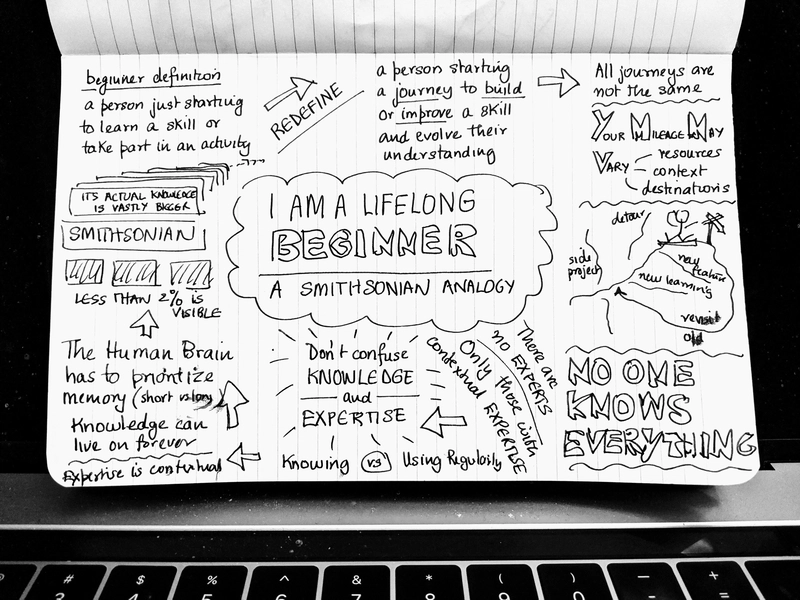 beginner definition
a person just starting
to learn a skill or
take part in an activity
REDEFINE
a person starting
a journey to build
or improve a skill
and evolve their
understanding
All journeys are
not the same
YOUR MILEAGE MAY
VARY
resources
context
destinations
I AM A LIFELONG
BEGINNER
A SMITHSONIAN ANALOGY
ITS ACTUAL KNOWLEDGE
IS VASTLY BIGGER
SMITHSONIAN
LESS THAN 2% is
VISIBLE
The Human Brain
has to prioritize
memory (short
Knowledge can
live on forever
Expertise is contextual
Don't confuse
KNOWLEDGE
and
EXPERTISE
Knowing vs Using Regularly
There are
no EXPERTS
Only those with
contextual EXPERTISE
detour
side
project
new
feature
new learning
revisit
old
NO ONE
KNOWS
EVERYTHING
# $ % ^ & * ( ) — +
3 4 5 6 7 8 9 0 - =